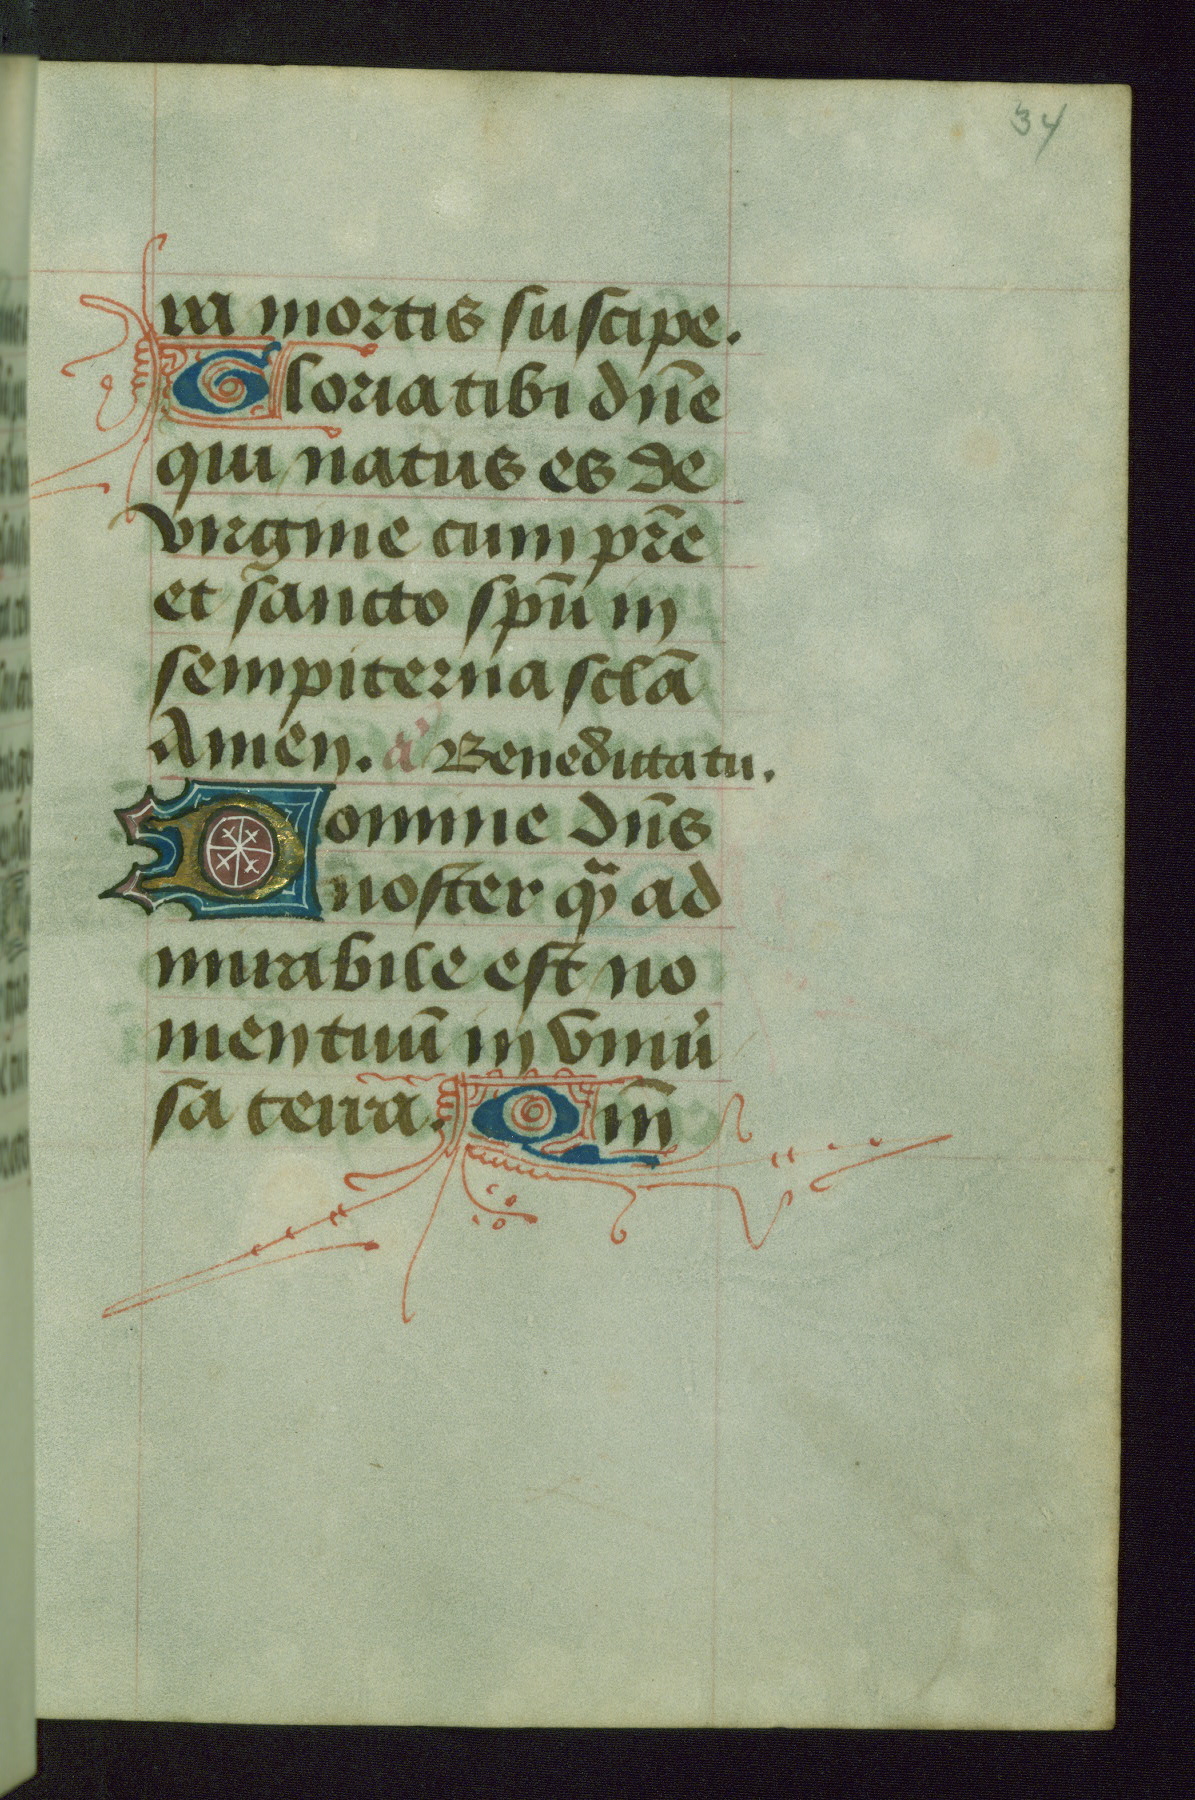 34
ra mortis suscipe.
Gloria tibi dn̄e
qui natus es de
virgine cum pr̄e
et sancto spū in
sempiterna sclā
Amen. a' Benedicta tu.
Domine dn̄s
noster q̄ ad
mirabile est no
men tuū in vniu'
sa terra. Qm̄